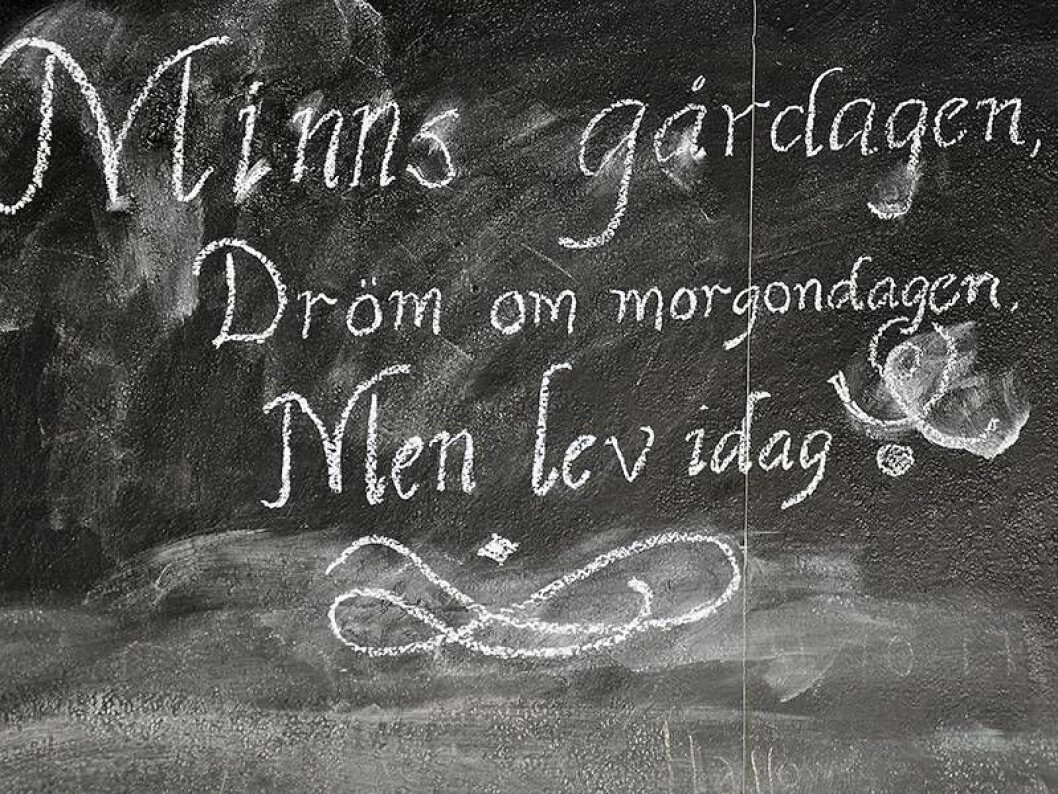 Minns gårdagen,
Dröm om morgondagen,
Men lev idag